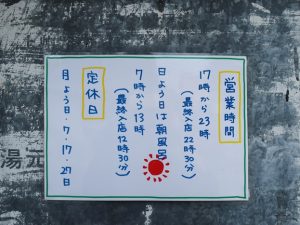 営業時間
17時から23時
（最終入店22時30分）
日よう日は朝風呂
7時から13時
（最終入店12時30分）
定休日
月よう日・7・17・27日
湯元